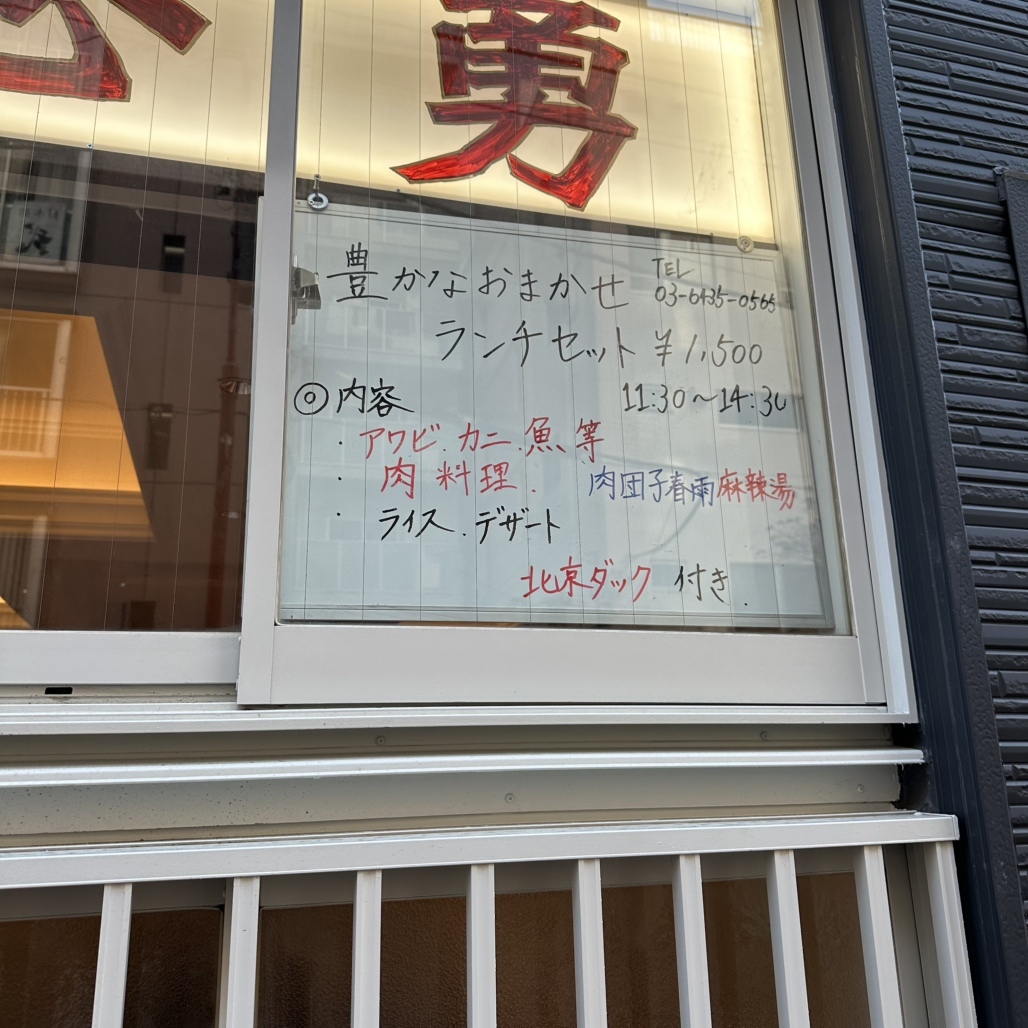 勇
豊かなおまかせ
TEL
03-6435-0565
ランチセット ¥1,500
◎内容 11:30〜14:30
・アワビ.カニ.魚、等
・肉料理. 肉団子春雨麻辣湯
・ライス.デザート
北京ダック付き.